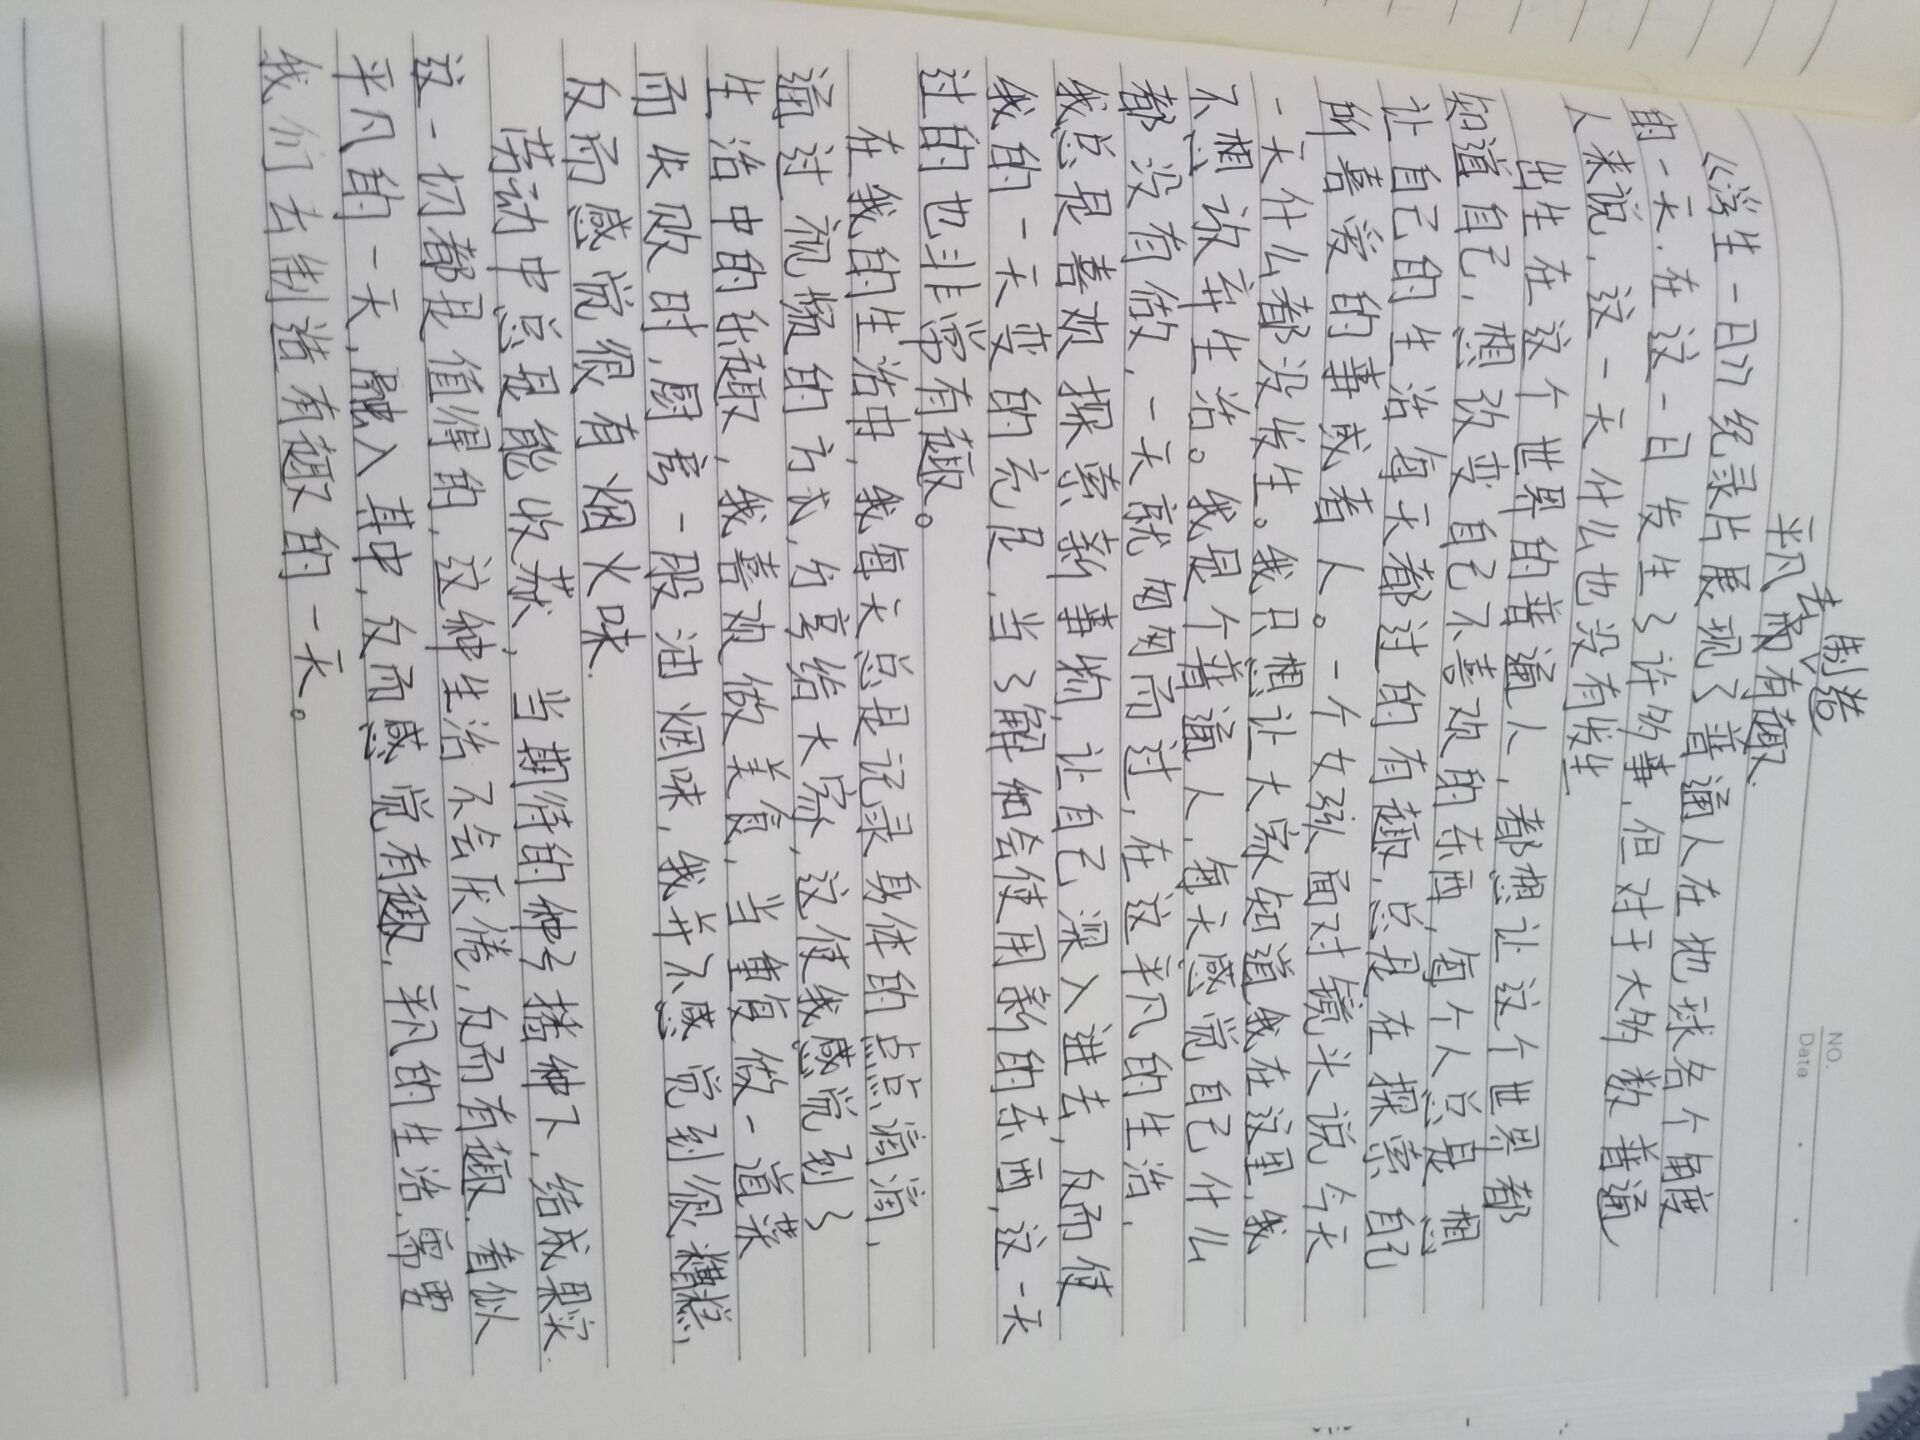 制造
去
平凡而有趣.
NO.
Date
《浮生一日》纪录片展现了普通人在地球各个角度
的一天.在这一日发生了许多事,但对于大多数普通
人来说,这一天什么也没有发生
出生在这个世界的普通人,都想让这个世界都
知道自己,想改变自己不喜欢的东西,每个人总是想
让自己的生活每天都过的有趣,总是在探索自己
所喜爱的事或者人。一个女孩面对镜头说今天
一天什么都没发生。我只想让大家知道我在这里,我
不想放弃生活。我是个普通人,每天感觉自己什么
都没有做,一天就匆匆而过,在这平凡的生活,
我总是喜欢探索新事物,让自己深入进去,反而使
我的一天变的充足,当了解和会使用新的东西,这一天
过的也非常有趣。
在我的生活中,我每天总是记录身体的点点滴滴,
通过视频的方式,分享给大家,这使我感觉到了
生活中的乐趣,我喜欢做美食,当重复做一道菜
而失败时,厨房一股油烟味,我并不感觉到很糟糕,
反而感觉很有烟火味.
劳动中总是能收获,当期待的种子播种下,结成果实.
这一切都是值得的,这种生活不会厌倦,反而有趣.看似
平凡的一天,融入其中,反而感觉有趣,平凡的生活,需要
我们去制造有趣的一天。